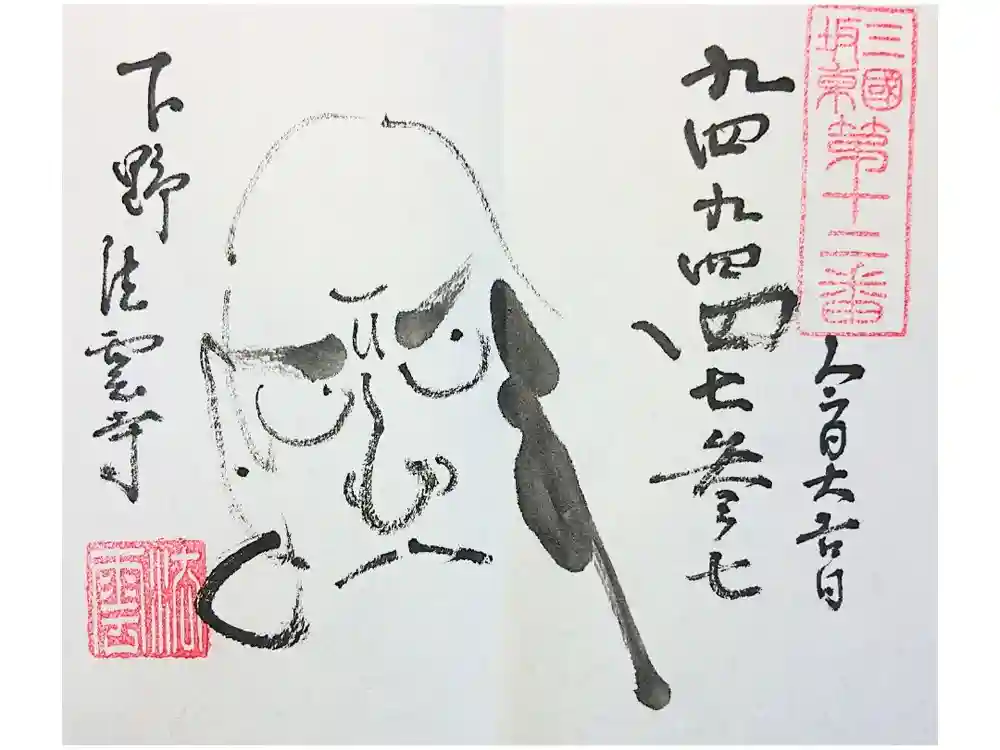 三國
坂東
第十二番
大吉日
九四九四四七参七
下野法雲寺
法雲